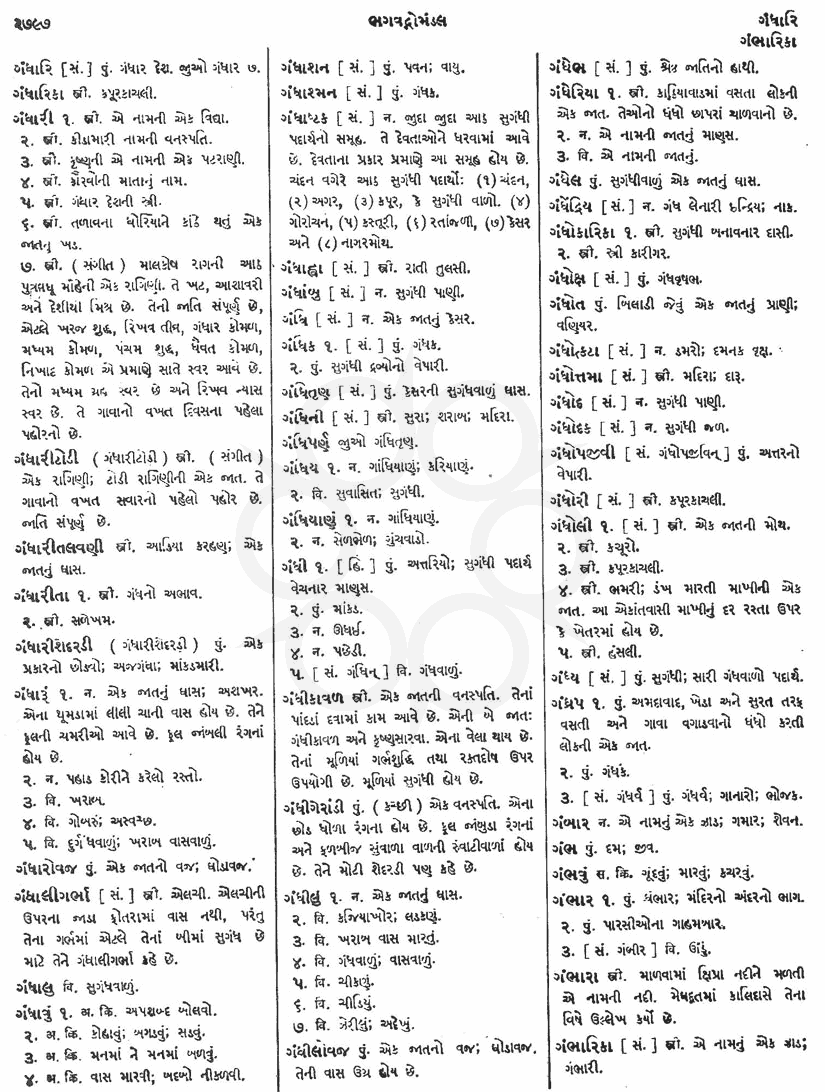 ૨૭૯૭
ભગવદ્ગોમંડલ
ગંધારિ
ગંભારિકા
ગંધારિ [ સં. ] પું. ગંધાર દેશ. જુઓ ગંધાર ૭.
ગંધારિકા સ્ત્રી. કપૂરકાચલી.
ગંધારી ૧. સ્ત્રી. એ નામની એક વિદ્યા.
૨. સ્ત્રી. કીડામારી નામની વનસ્પતિ.
૩. સ્ત્રી. કૃષ્ણની એ નામની એક પટરાણી.
૪. સ્ત્રી. કૌરવોની માતાનું નામ.
૫. સ્ત્રી. ગંધાર દેશની સ્ત્રી.
૬. સ્ત્રી. તળાવના ધોરિયાને કાંઠે થતું એક
જાતનું ખડ.
૭. સ્ત્રી. ( સંગીત ) માલકોષ રાગની આઠ
પુત્રવધૂ માંહેની એક રાગિણી. તે ખટ, આશાવરી
અને દેશીથી મિશ્ર છે. તેની જાતિ સંપૂર્ણ છે,
એટલે ખરજ શુદ્ધ, રિખવ તીવ્ર, ગંધાર કોમળ,
મધ્યમ કોમળ, પંચમ શુદ્ધ, ધૈવત કોમળ,
નિખાદ કોમળ એ પ્રમાણે સાતે સ્વર આવે છે.
તેનો મધ્યમ ગ્રહ સ્વર છે અને રિખવ ન્યાસ
સ્વર છે. તે ગાવાનો વખત દિવસના પહેલા
પહોરનો છે.
ગંધારીટોડી ( ગંધારીટોડી ) સ્ત્રી. ( સંગીત )
એક રાગિણી; ટોડી રાગિણીની એક જાત. તે
ગાવાનો વખત સવારનો પહેલો પહોર છે.
જાતિ સંપૂર્ણ છે.
ગંધારીતલવણી સ્ત્રી. આડિયા કરહણ; એક
જાતનું ઘાસ.
ગંધારીતા ૧. સ્ત્રી. ગંધનો અભાવ.
૨. સ્ત્રી. સળેખમ.
ગંધારીશેદરડી ( ગંધારીશૅદરડી ) પું. એક
પ્રકારનો છોડવો; અજગંધા; માંકડમારી.
ગંધારૂં ૧. ન. એક જાતનું ઘાસ; અશખર.
એના થૂમડામાં લીલી ચાની વાસ હોય છે. તેને
ફૂલની ચમરીઓ આવે છે. ફૂલ જાંબલી રંગનાં
હોય છે.
૨. ન. પહાડ કોરીને કરેલો રસ્તો.
૩. વિ. ખરાબ.
૪. વિ. ગોબરું; અસ્વચ્છ.
૫. વિ. દુર્ગંધવાળું; ખરાબ વાસવાળું.
ગંધારોવજ પું. એક જાતનો વજ; ઘોડાવજ.
ગંધાલીગર્ભા [ સં. ] સ્ત્રી. એલચી. એલચીની
ઉપરના જાડા ફોતરામાં વાસ નથી, પરંતુ
તેના ગર્ભમાં એટલે તેનાં બીમાં સુગંધ છે
માટે તેને ગંધાલીગર્ભા કહે છે.
ગંધાલુ વિ. સુગંધવાળું.
ગંધાવું ૧. અ. ક્રિ. અપશબ્દ બોલવો.
૨. અ. ક્રિ. કોહાવું; બગડવું; સડવું.
૩. અ. ક્રિ. મનમાં ને મનમાં બળવું.
૪. અ. ક્રિ. વાસ મારવી; બદબો નીકળવી.
ગંધાશન [ સં. ] પું. પવન; વાયુ.
ગંધાશ્મન [ સં. ] પું. ગંધક.
ગંધાષ્ટક [ સં. ] ન. જુદા જુદા આઠ સુગંધી
પદાર્થનો સમૂહ. તે દેવતાઓને ધરવામાં આવે
છે. દેવતાના પ્રકાર પ્રમાણે આ સમૂહ હોય છે.
ચંદન વગેરે આઠ સુગંધી પદાર્થોઃ (૧) ચંદન,
(૨) અગર, (૩) કપૂર, કે સુગંધી વાળો. (૪)
ગોરોચન, (૫) કસ્તૂરી, (૬) રતાંજળી, (૭) કેસર
અને (૮) નાગરમોથ.
ગંધાહ્વા [ સં. ] સ્ત્રી. રાતી તુલસી.
ગંધાંબુ [ સં. ] ન. સુગંધી પાણી.
ગંધિ [ સં. ] ન. એક જાતનું કેસર.
ગંધિક ૧. [ સં. ] પું. ગંધક.
૨. પું. સુગંધી દ્રવ્યોનો વેપારી.
ગંધિતૃણ [ સં. ] પું. કેસરની સુગંધવાળું ઘાસ.
ગંધિની [ સં. ] સ્ત્રી. સુરા; શરાબ; મદિરા.
ગંધિપર્ણ જુઓ ગંધિતૃણ.
ગંધિય ૧. ન. ગાંધિયાણું; કરિયાણું.
૨. વિ. સુવાસિત; સુગંધી.
ગંધિયાણું ૧. ન. ગાંધિયાણું.
૨. ન. સેળભેળ; ગુંચવાડો.
ગંધી ૧. [ હિં. ] પું. અત્તરિયો; સુગંધી પદાર્થ
વેચનાર માણસ.
૨. પું. માંકડ.
૩. ન. ઊધઈ.
૪. ન. પછેડી.
૫. [ સં. ગંધિન્ ] વિ. ગંધવાળું.
ગંધીકાવળ સ્ત્રી. એક જાતની વનસ્પતિ. તેનાં
પાંદડાં દવામાં કામ આવે છે. એની બે જાતઃ
ગંધીકાવળ અને કૃષ્ણસારવા. એના વેલા થાય છે.
તેનાં મૂળિયાં ગર્ભશુદ્ધિ તથા રક્તદોષ ઉપર
ઉપયોગી છે. મૂળિયાં સુગંધી હોય છે.
ગંધીગેરાંડી પું. ( કચ્છી ) એક વનસ્પતિ. એના
છોડ ધોળા રંગના હોય છે. ફૂલ જાંબુડા રંગનાં
અને ફળબીજ સુંવાળા વાળની રુંવાટીવાળાં હોય
છે. તેને મોટી શેદરડી પણ કહે છે.
ગંધીલું ૧. ન. એક જાતનું ઘાસ.
૨. વિ. કજિયાખોર; લડકણું.
૩. વિ. ખરાબ વાસ મારતું.
૪. વિ. ગંધવાળું; વાસવાળું.
૫. વિ. ચીકણું.
૬. વિ. ચીડિયું.
૭. વિ. ઝેરીલું; અદેખું.
ગંધીલોવજ પું. એક જાતનો વજ; ઘોડાવજ.
તેની વાસ ઉગ્ર હોય છે.
ગંધેભ [ સં. ] પું. શ્રેષ્ઠ જાતિનો હાથી.
ગંધેરિયા ૧. સ્ત્રી. કાઠિયાવાડમાં વસતા લોકની
એક જાત. તેઓનો ધંધો છાપરાં ચાળવાનો છે.
૨. ન. એ નામની જાતનું માણસ.
૩. વિ. એ નામની જાતનું.
ગંધેલ પું. સુગંધીવાળું એક જાતનું ઘાસ.
ગંધેંદ્રિય [ સં. ] ન. ગંધ લેનારી ઇન્દ્રિય; નાક.
ગંધોકારિકા ૧. સ્ત્રી. સુગંધી બનાવનાર દાસી.
૨. સ્ત્રી. સ્ત્રી કારીગર.
ગંધોક્ષ [ સં. ] પું. ગંધવૃષભ.
ગંધોત પું. બિલાડી જેવું એક જાતનું પ્રાણી;
વણિયર.
ગંધોત્કટા [ સં. ] ન. ડમરો; દમનક વૃક્ષ.
ગંધોત્તમા [ સં. ] સ્ત્રી. મદિરા; દારૂ.
ગંધોદ [ સં. ] ન. સુગંધી પાણી.
ગંધોદક [ સં. ] ન. સુગંધી જળ.
ગંધોપજીવી [ સં. ગંધોપજીવિન્ ] પું. અત્તરનો
વેપારી.
ગંધોરી [ સં. ] સ્ત્રી. કપૂરકાચલી.
ગંધોલી ૧. [ સં. ] સ્ત્રી. એક જાતની મોથ.
૨. સ્ત્રી. કચૂરો.
૩. સ્ત્રી. કપૂરકાચલી.
૪. સ્ત્રી. ભમરી; ડંખ મારતી માખીની એક
જાત. આ એકાંતવાસી માખીનું દર રસ્તા ઉપર
કે ખેતરમાં હોય છે.
૫. સ્ત્રી. હંસલી.
ગંધ્ય [ સં. ] પું. સુગંધી; સારી ગંધવાળો પદાર્થ.
ગંધ્રપ ૧. પું. અમદાવાદ, ખેડા અને સુરત તરફ
વસતી અને ગાવા વગાડવાનો ધંધો કરતી
લોકની એક જાત.
૨. પું. ગંધક.
૩. [ સં. ગંધર્વ ] પું. ગંધર્વ; ગાનારો; ભોજક.
ગંબાર ન. એ નામનું એક ઝાડ; ગમાર; શેવન.
ગંભ પું. દમ; જીવ.
ગંભવું સ. ક્રિ. ગૂંદવું; મારવું; કચરવું.
ગંભાર ૧. પું. ગંભાર; મંદિરનો અંદરનો ભાગ.
૨. પું. પારસીઓના ગાહમબાર.
૩. [ સં. ગંભીર ] વિ. ઊંડું.
ગંભારા સ્ત્રી. માળવામાં ક્ષિપ્રા નદીને મળતી
એ નામની નદી. મેઘદૂતમાં કાલિદાસે તેના
વિષે ઉલ્લેખ કર્યો છે.
ગંભારિકા [ સં. ] સ્ત્રી. એ નામનું એક ઝાડ;
ગંભારી.